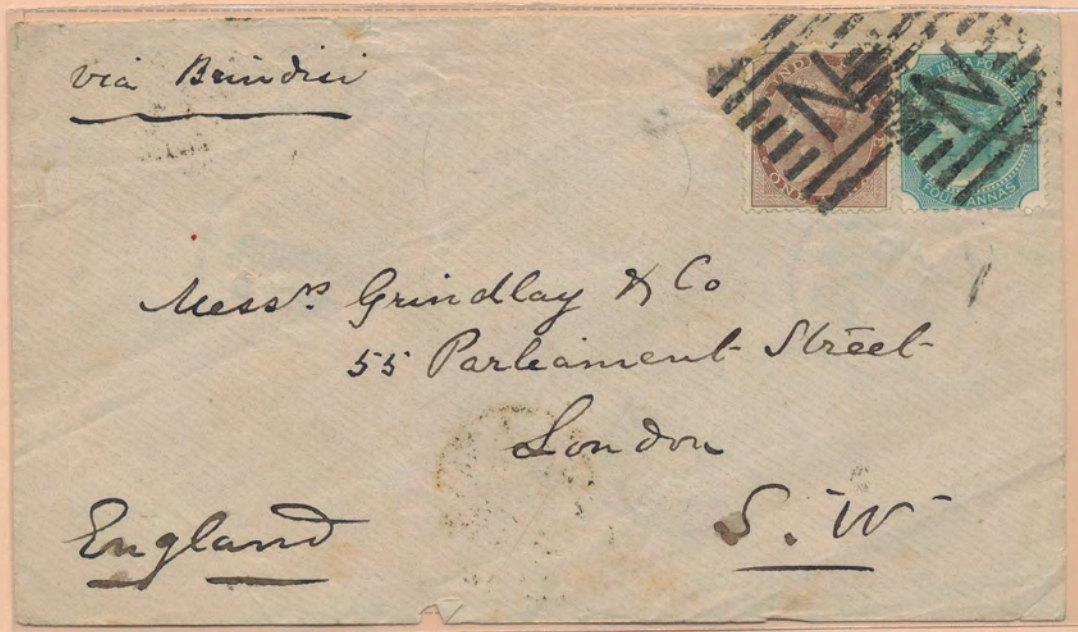 via Brindisi
N N
INDIA
ONE
EAST INDIA POSTAGE
FOUR ANNAS
Mess.rs Grindlay & Co
55 Parliament Street
London
S. W
England